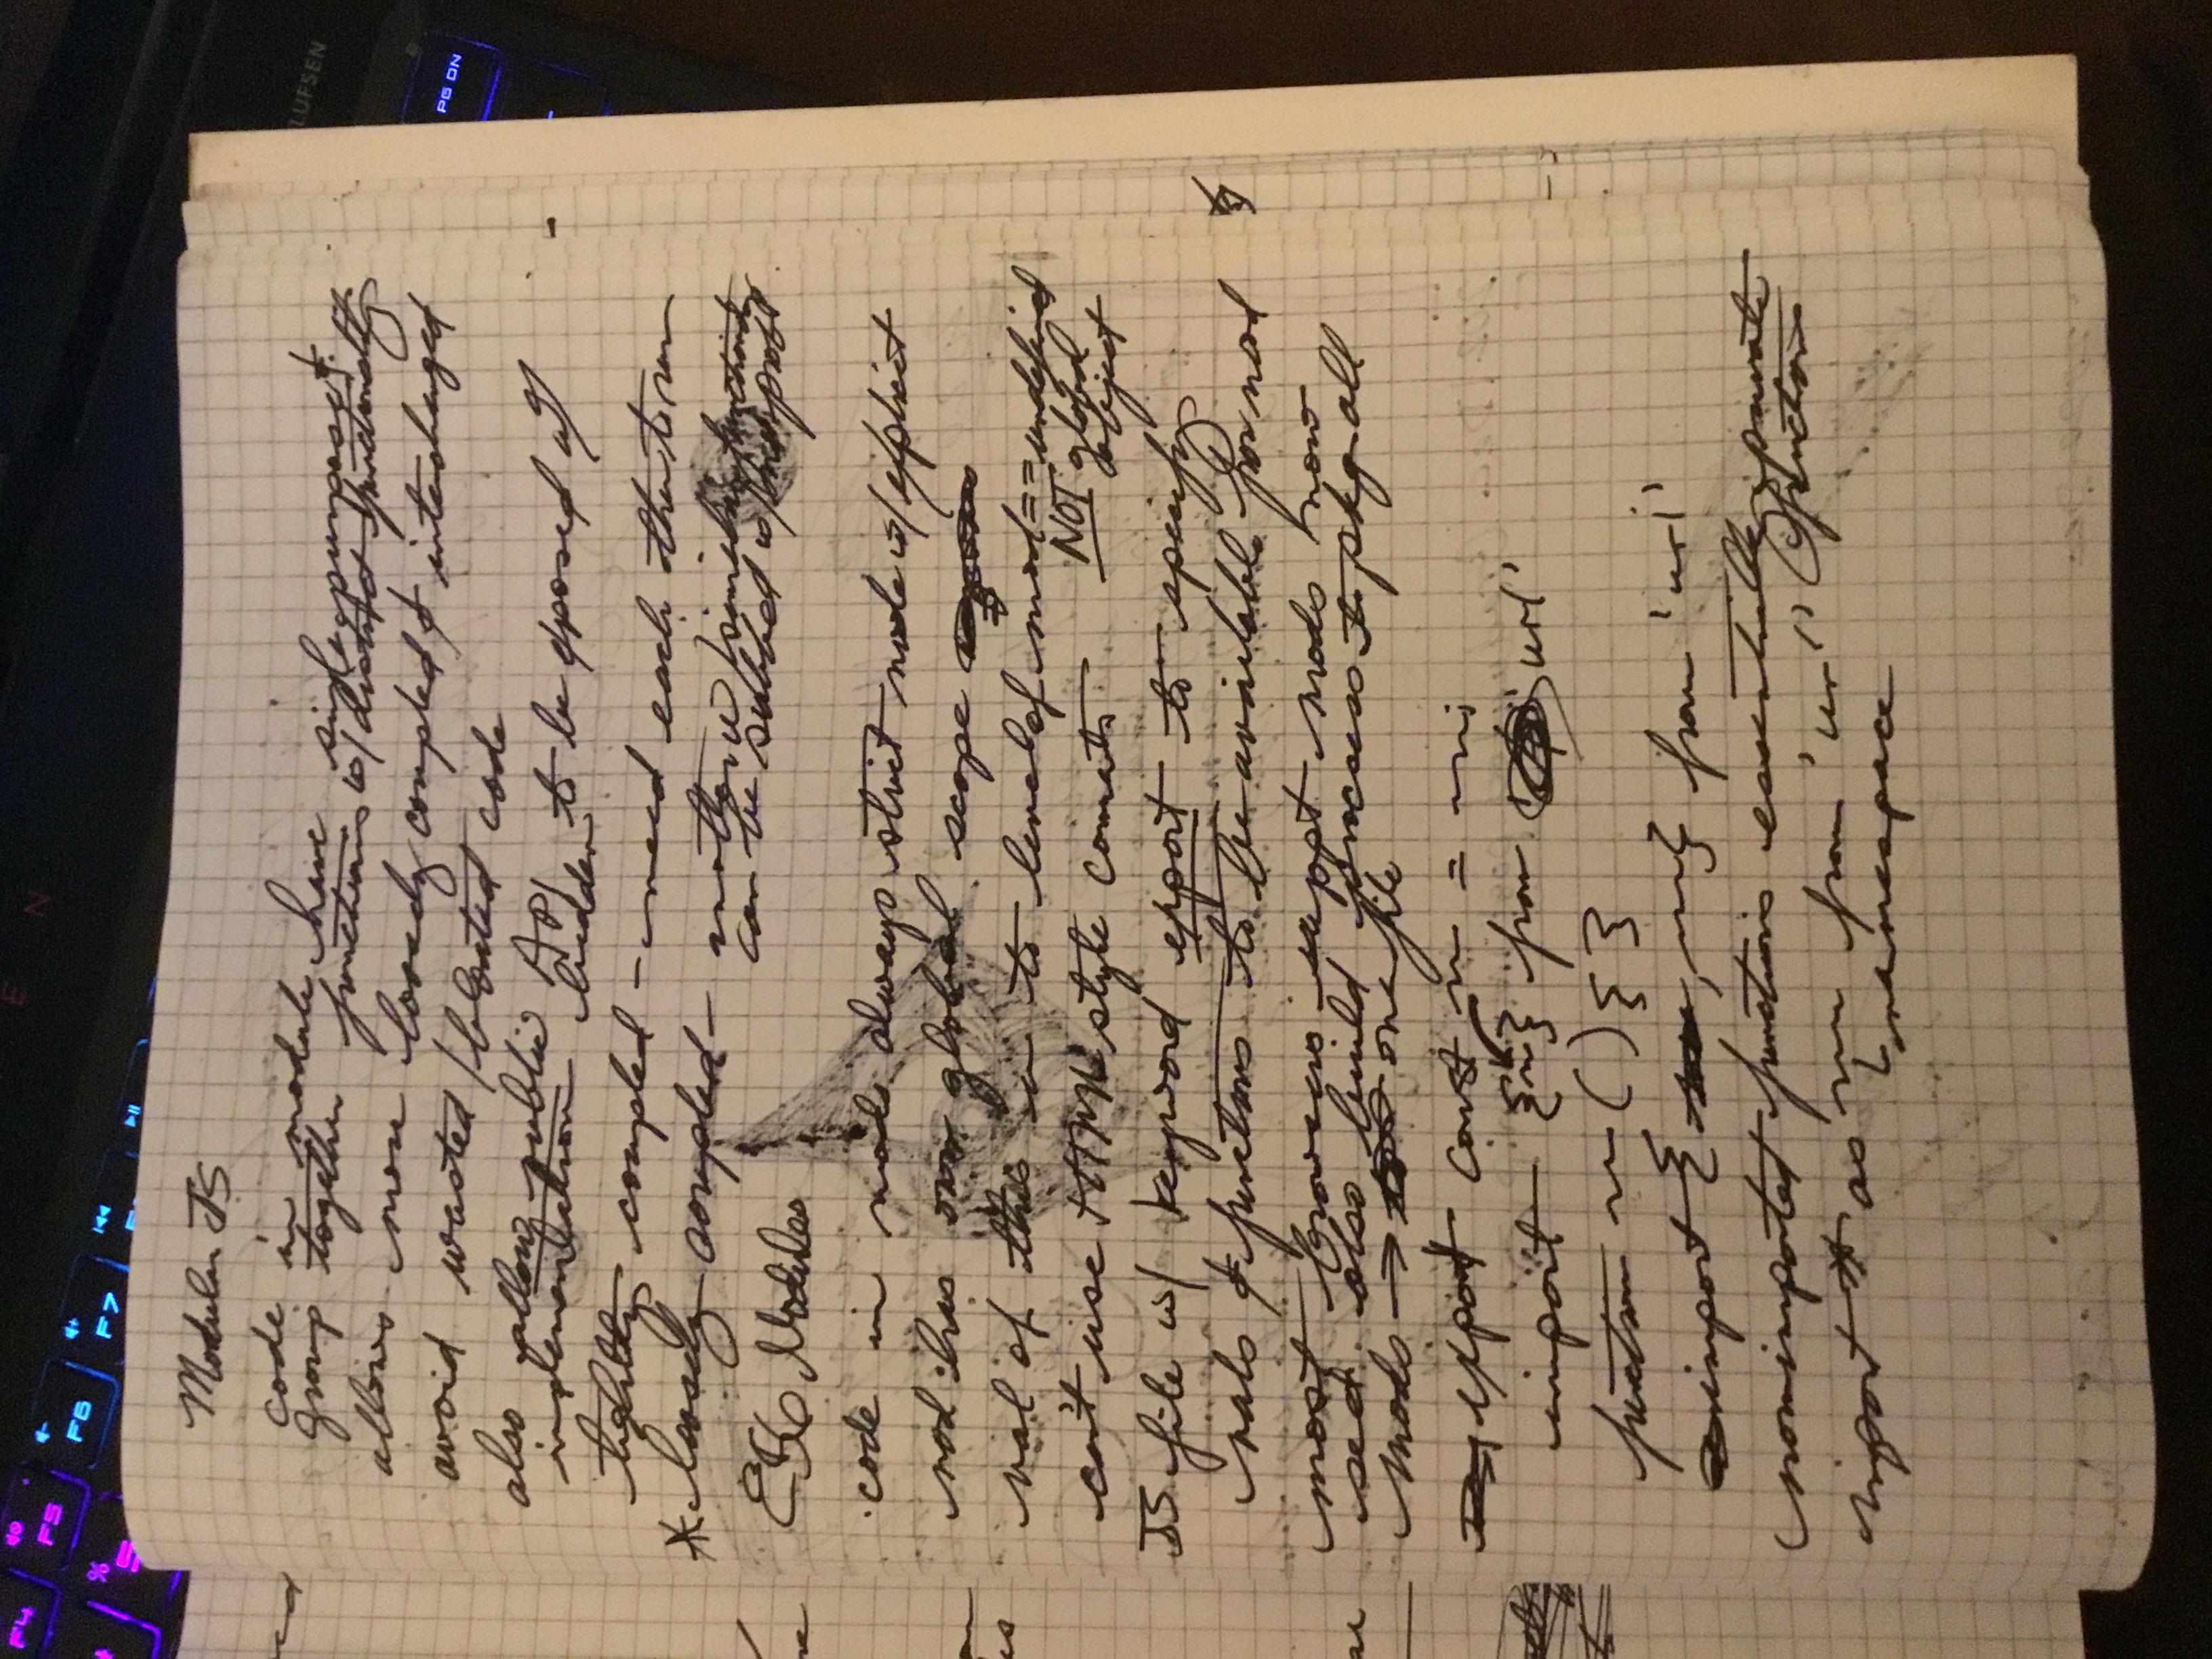 F4
F5
F6
F7
%
5
E N
LUFSEN
PG DN
Modular JS
code in module have single purpose &
group together functions w/ distinct functionality
allows more loosely coupled & interchanged
avoid wasted / bloated code
also allow public API to be exposed w/
implementation hidden
tightly coupled - need each other to run
* loosely coupled - another w/ similar functionality
can be subbed w/
ES6 Modules
code in mods always strict mode w/ explicit
mod has own global scope
val of this in to level of mod == undefined
NOT global
object
can't use HTML style comments
JS file w/ keyword export to specify
vals & functions to be available for mod
most browsers suppt mods now
also build process to pkg all
mods → one file
export const ~ = ~;
import {~} from url'
function ~ () { }
import { , ~} from 'url'
nonimported functions essentially private
functions
import * as ~ from 'url'
namespace